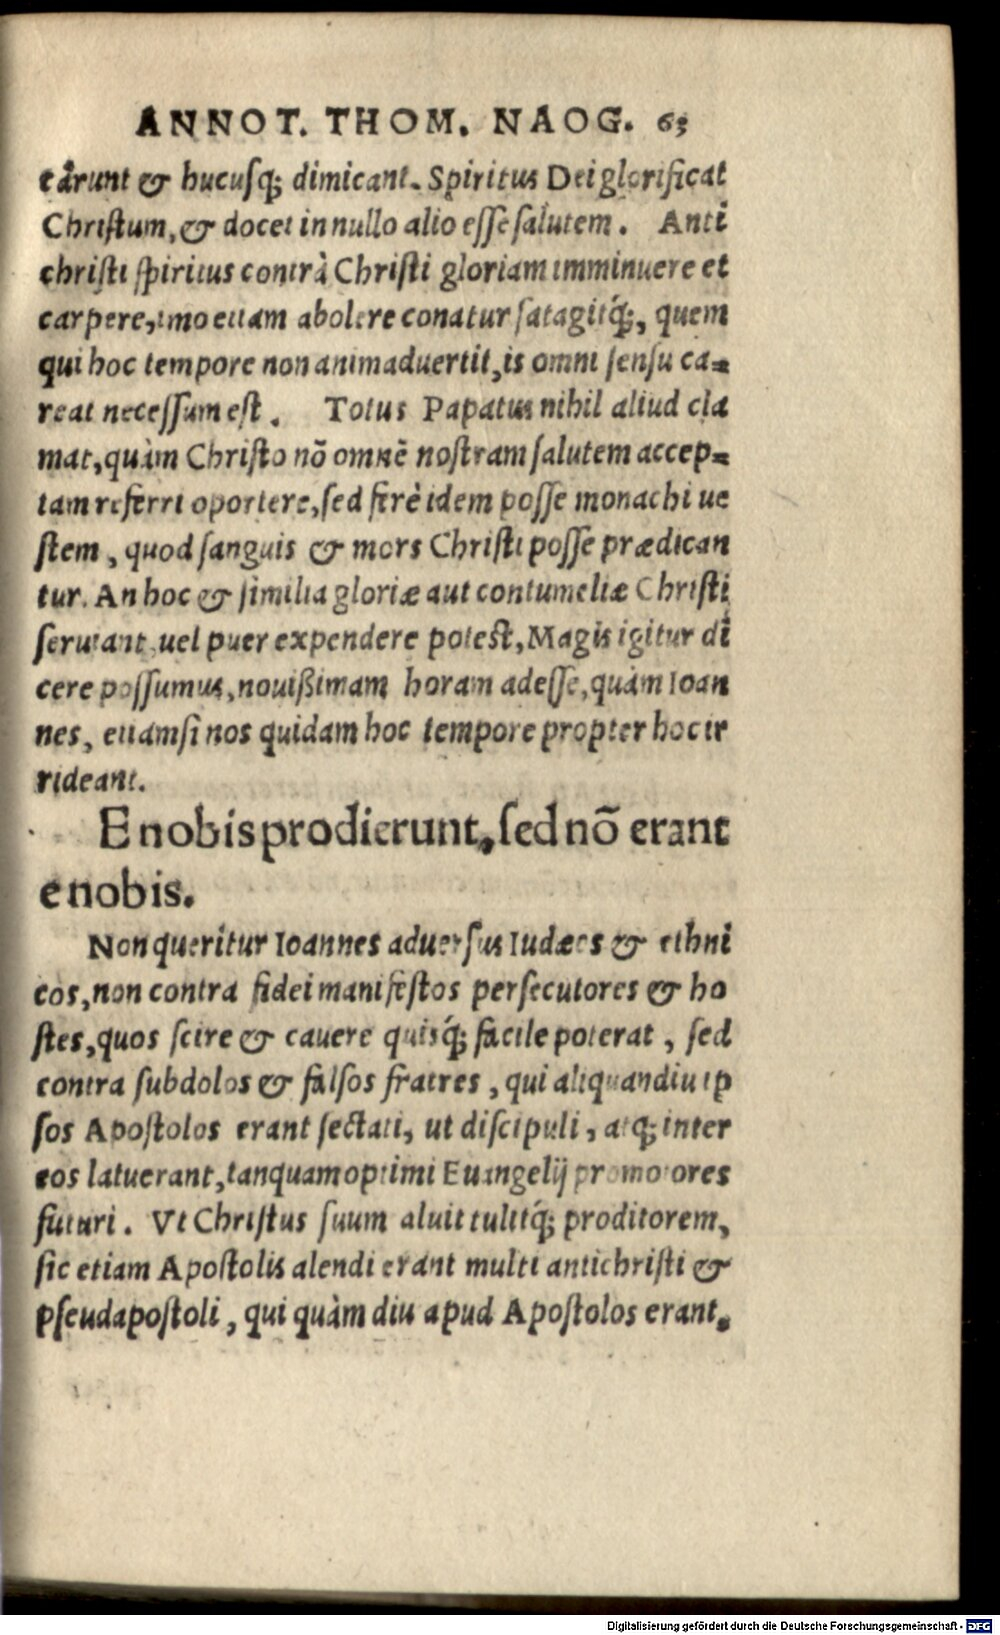 ANNOT. THOM. NAOG. 65
cârunt & hucusq; dimicant. Spiritus Dei glorificat
Christum, & docet in nullo alio esse salutem. Anti
christi spiritus contrà Christi gloriam imminuere et
carpere, imo etiam abolere conatur satagitq́;, quem
qui hoc tempore non animaduertit, is omni sensu ca=
reat necessum est. Totus Papatus nihil aliud cla
mat, quàm Christo nõ omnẽ nostram salutem accep=
tam referri oportere, sed ferè idem posse monachi ue
stem, quod sanguis & mors Christi posse prædican
tur. An hoc & similia gloriæ aut contumeliæ Christi
seruiant, uel puer expendere potest, Magis igitur di
cere possumus, nouißimam horam adesse, quàm Ioan
nes, etiamsi nos quidam hoc tempore propter hoc ir
rideant.
E nobis prodierunt, sed nõ erant
e nobis.
Non queritur Ioannes aduersus Iudæos & ethni
cos, non contra fidei manifestos persecutores & ho
stes, quos scire & cauere quisq́; facile poterat, sed
contra subdolos & falsos fratres, qui aliquandiu ip
sos Apostolos erant sectati, ut discipuli, atq; inter
eos latuerant, tanquam optimi Euangelij promotores
futuri. Vt Christus suum aluit tulitq́; proditorem,
sic etiam Apostolis alendi erant multi antichristi &
pseudapostoli, qui quàm diu apud Apostolos erant,
Digitalisierung gefördert durch die Deutsche Forschungsgemeinschaft - DFG